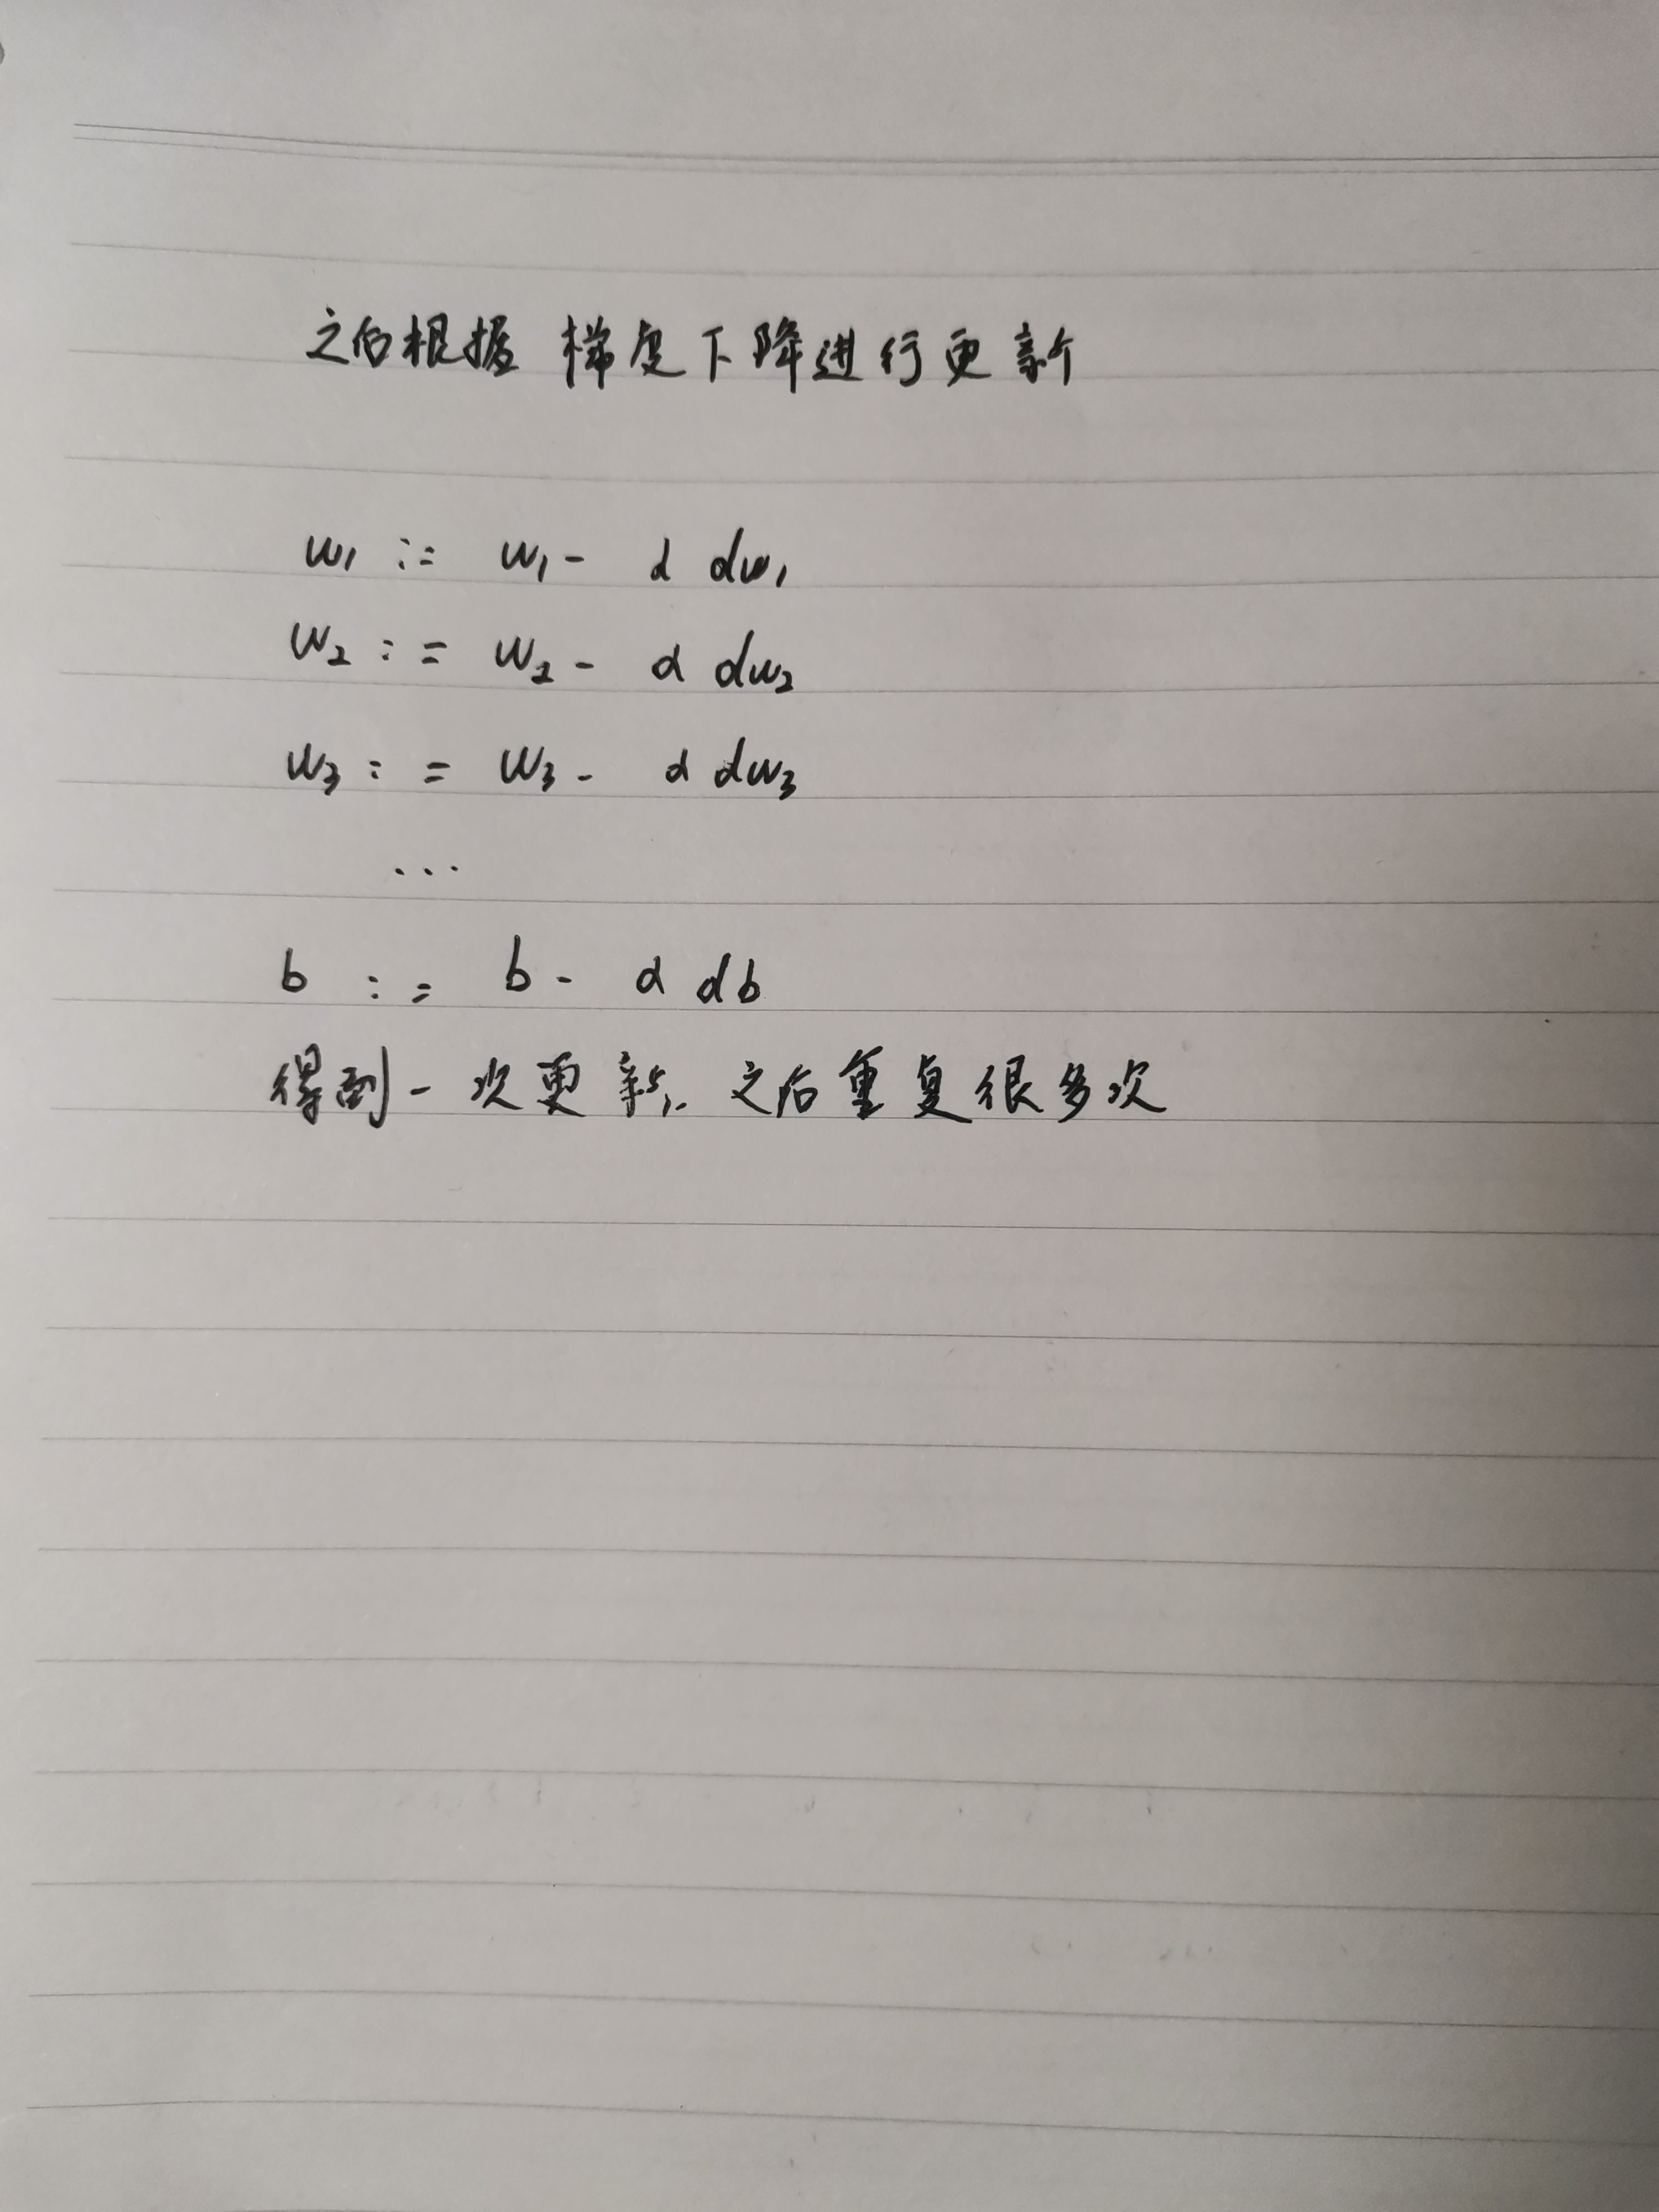 之后根据 梯度下降进行更新
w₁ := w₁ - α dw₁
w₂ := w₂ - α dw₂
w₃ := w₃ - α dw₃
...
b := b - α db
得到一次更新. 之后重复很多次